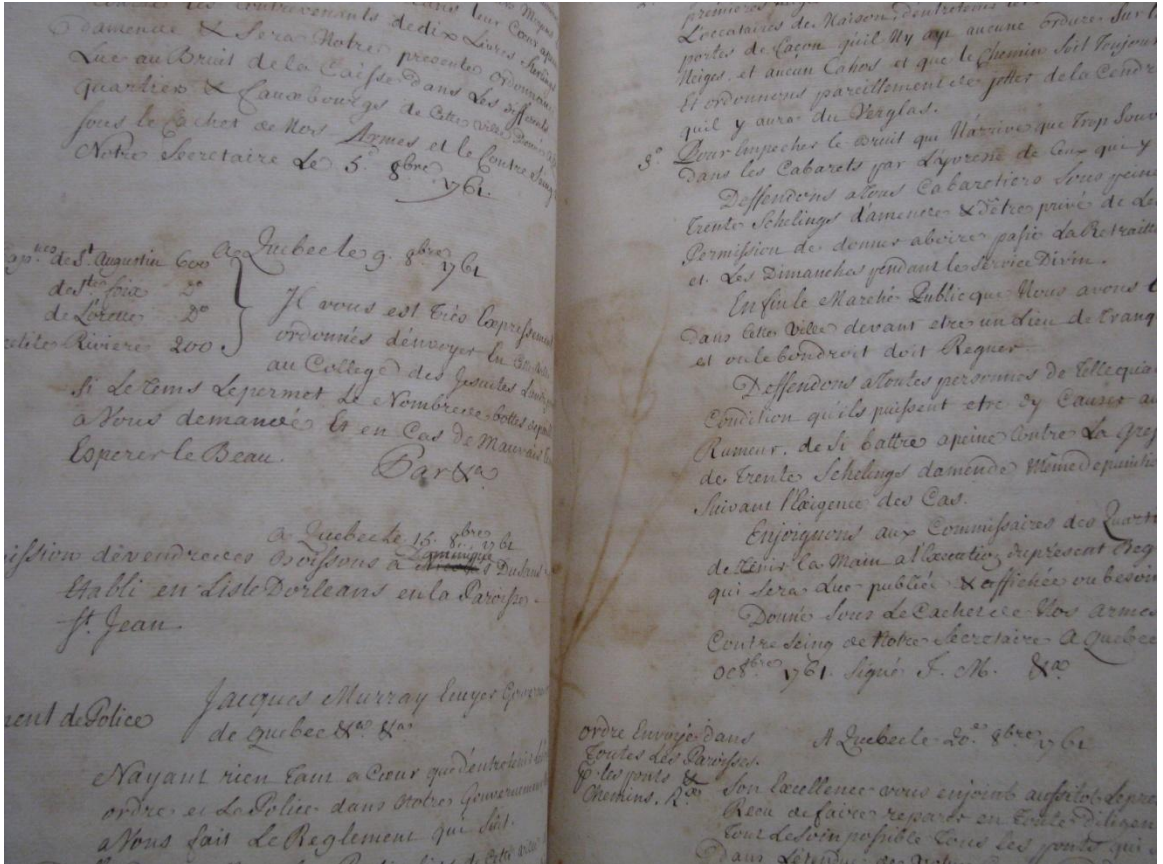 les contrevenants de dix Livres Sterling
damende & Sera Notre presente ordonnance
Luë au Bruit de la Caisse dans Les differents
quartiers & fauxbourgs de Cette Ville Donné
sous le Cachet de Nos Armes et le Contre Seing
Notre Secretaire Le 5. 8bre 1761.
a Quebec le 9. 8bre 1761
de St. Augustin 600
de Ste foix Do
de Lorette Do
petite Riviere 200
Il vous est Très Expressement
ordonnés dénvoyer
au College des Jesuites
Si Le Tems Le permet Le Nombre de bottes
a Vous demandé Et en Cas de Mauvais
Esperer le Beau.
Par &a
a Quebec le 15. 8bre 1761
ission dévendre ces Boissons a Dominique
Etabli en Liste Dorleans en la Paroisse
St. Jean.
Jacques Murray Ecuyer
de Quebec &a &a
ment de Police
Nayant rien Tant a Cœur que d'entretenir
ordre et La Police dans Notre Gouvernement
a Vous fait Le Reglement qui Suit.
premieres
Locataires de Maison, d'entretenir
portes de façon quil Ny aye aucune ordure Sur
Neiges, et aucun Cahos et que le Chemin Soit Toujours
Et ordonnons pareillement de jetter de la Cendre
quil y aura du Verglas.
8o. Pour Empecher le Bruit qui Narrive que Trop Souv
dans les Cabarets par L'yvresse de Ceux qui y
Deffendons a Tous Cabaretiers Sous peine
Trente Schelings d'amende & d'être privé de
Permission de donner a boire passé La Retraitte
et Les Dimanches pendant le Service Divin.
Enfin le Marché Public que Nous avons
Dans Cette Ville devant etre un Lieu de Tranq
et ou le bon droit doit Regner
Deffendons a Toutes personnes de Telle
Condition qu'ils puissent etre dy Causer
Rumeur, de Si battre a peine Contre La
de Trente Schelings damende Même de punition
Suivant l'Exigence des Cas.
Enjoignons aux Commissaires des Quart
de Tenir la Main a l'Execution du present Reg
qui Sera Luë publié & affichée ou besoin
Donné Sous Le Cachet de Nos armes
Contre Seing de Notre Secretaire A Quebec
8bre 1761. Signé J. M. &a
ordre Envoyé dans
Toutes Les Paroisses.
p. les ponts &
Chemins.
A Quebec le 20. 8bre 1761
Son Excellence vous enjoint aussitot Le
Recu de faire reparer en Toute Diligen
Tout Le Soin possible Tous les ponts qui
Dans L'etendue de Votre